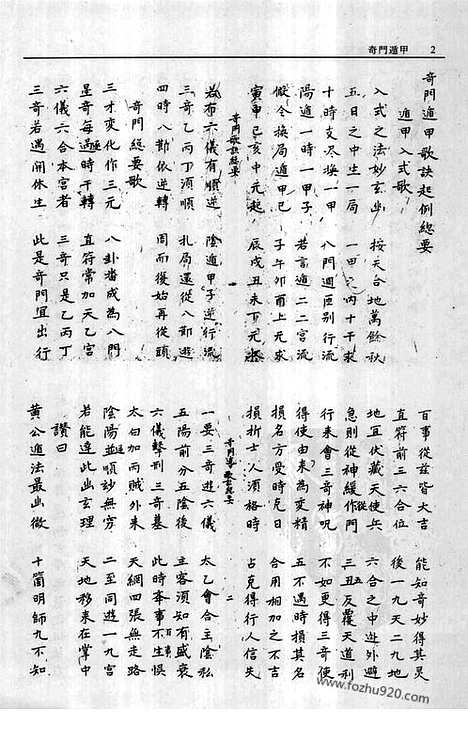 奇門遁甲 2
奇門遁甲歌訣起例總要
遁甲入式歌
入式之法妙玄幽 按天合地萬餘秋
五日之中生一局 一甲之內十干求
十時支尽坱一甲 八門週匝別行流
陽遁一時一甲子 若言遁二二宮流
假令换局遁甲己 子午卯酉上元求
寅申巳亥中元起 辰戌丑未下元
奇門歌訣總要
若布六儀有順逆 陰遁甲子逆行流
三奇乙丙丁須順 扎局還從八節遊
四時八節依逆轉 周而復始再從頭
奇門總要歌
三才变化作三元 八卦畨成為八門
星奇每遇時干轉 直符常加天乙宮
六儀六合本宮者 三奇只是乙丙丁
三奇若遇開休生 此是奇門宜出行
百事從兹皆大吉 能知奇妙得其灵
直符前三六合位 後一九天二九地
地宜伏藏天使兵 六合之中遊外避
急則從神緩從門 三五反覆天道利
行來會三奇神呪 不如更得三奇使
得使由来為変精 五不遇時損其名
損名方受時克日 合用相加之不吉
損折士人須格時 占克得行人信失
奇門導歌
二
一要三奇遊六儀 太乙會合主陰私
五陽前分五陰後 主客須知有盛衰
六儀擊刑三奇墓 此時百事不生悞
太白加丙賊外来 天網四張無走路
陰陽並遁順妙無穷 二至同遊一九宮
若能達此幽玄理 天地移来在掌中
讚曰
黃公遁法最幽微 十箇明師九不知
www.fozhu920.com